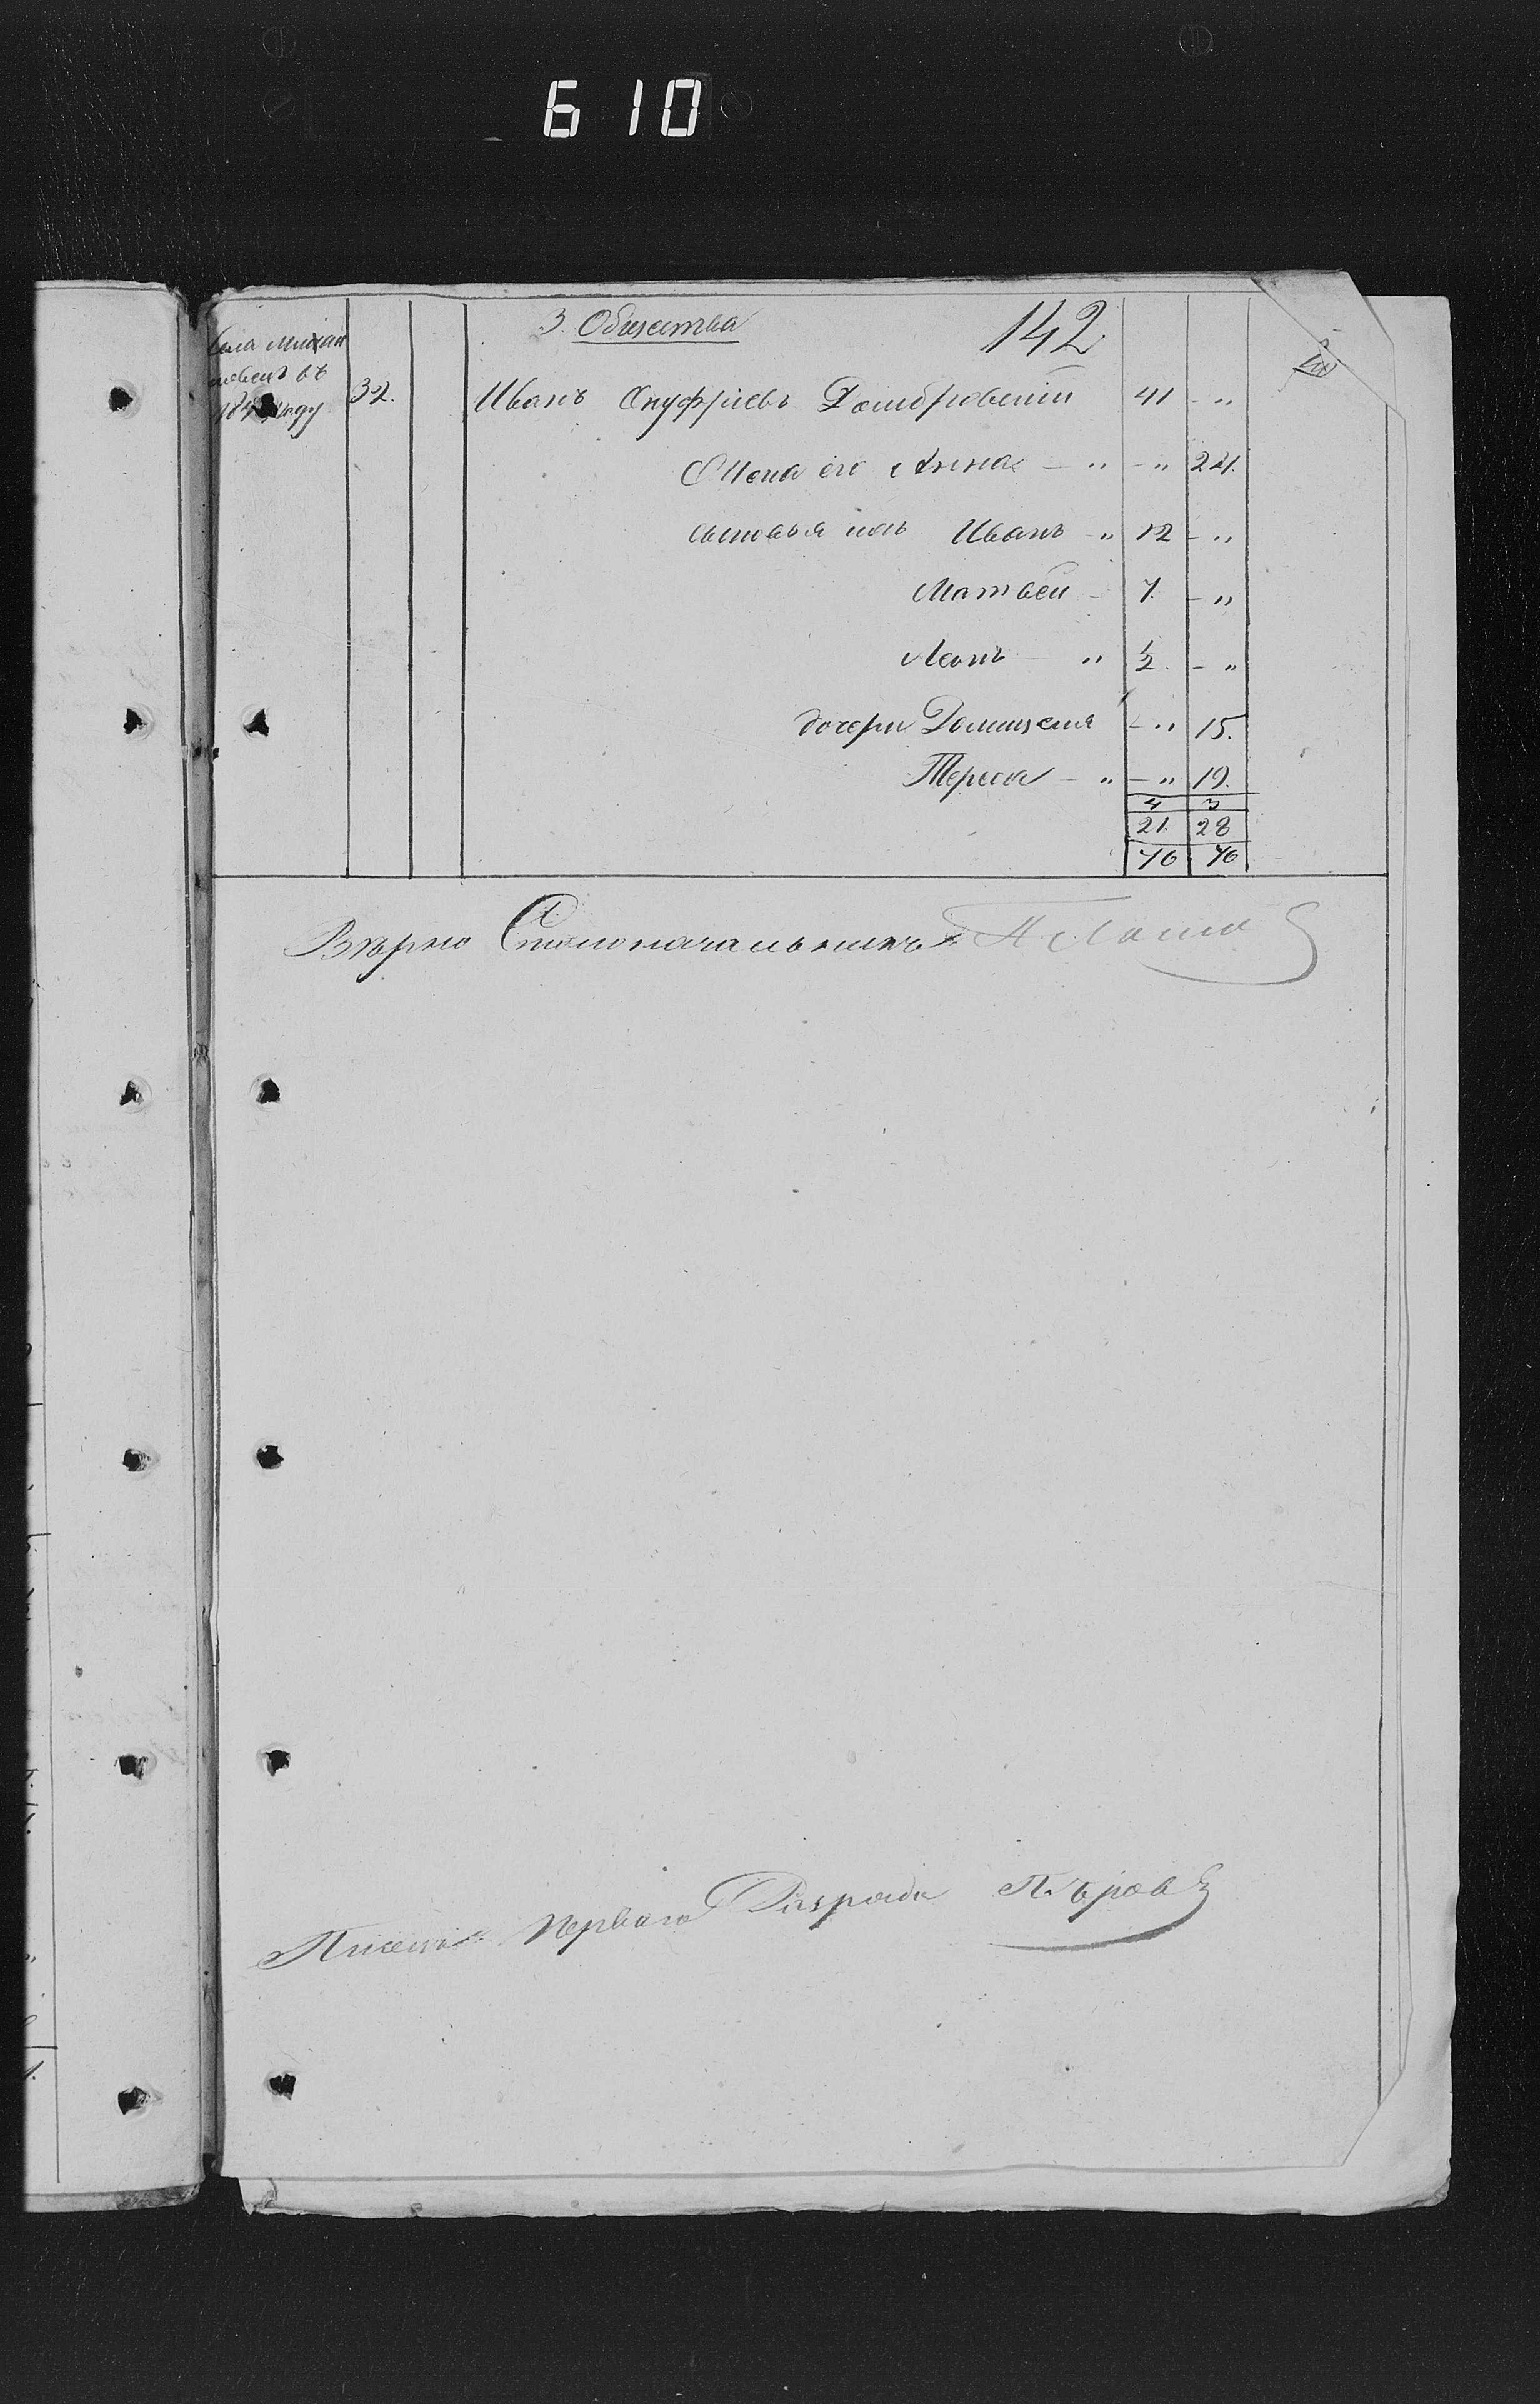 610
142
3. Общества
Села Михай
ловец въ
184 году
32. Иванъ Онуфріевъ Домбровскій 41 - "
Жена его Анна - " - " 24.
сыновья ихъ Иванъ - " 12 - "
Матвей - 7. - "
Леонъ - " 1/2. - "
дочери Домицеля - " 15.
Тереса - " - " 19.
4 3
21. 28
76 76
Вѣрно Столоначальникъ
Писецъ Перваго Разряда